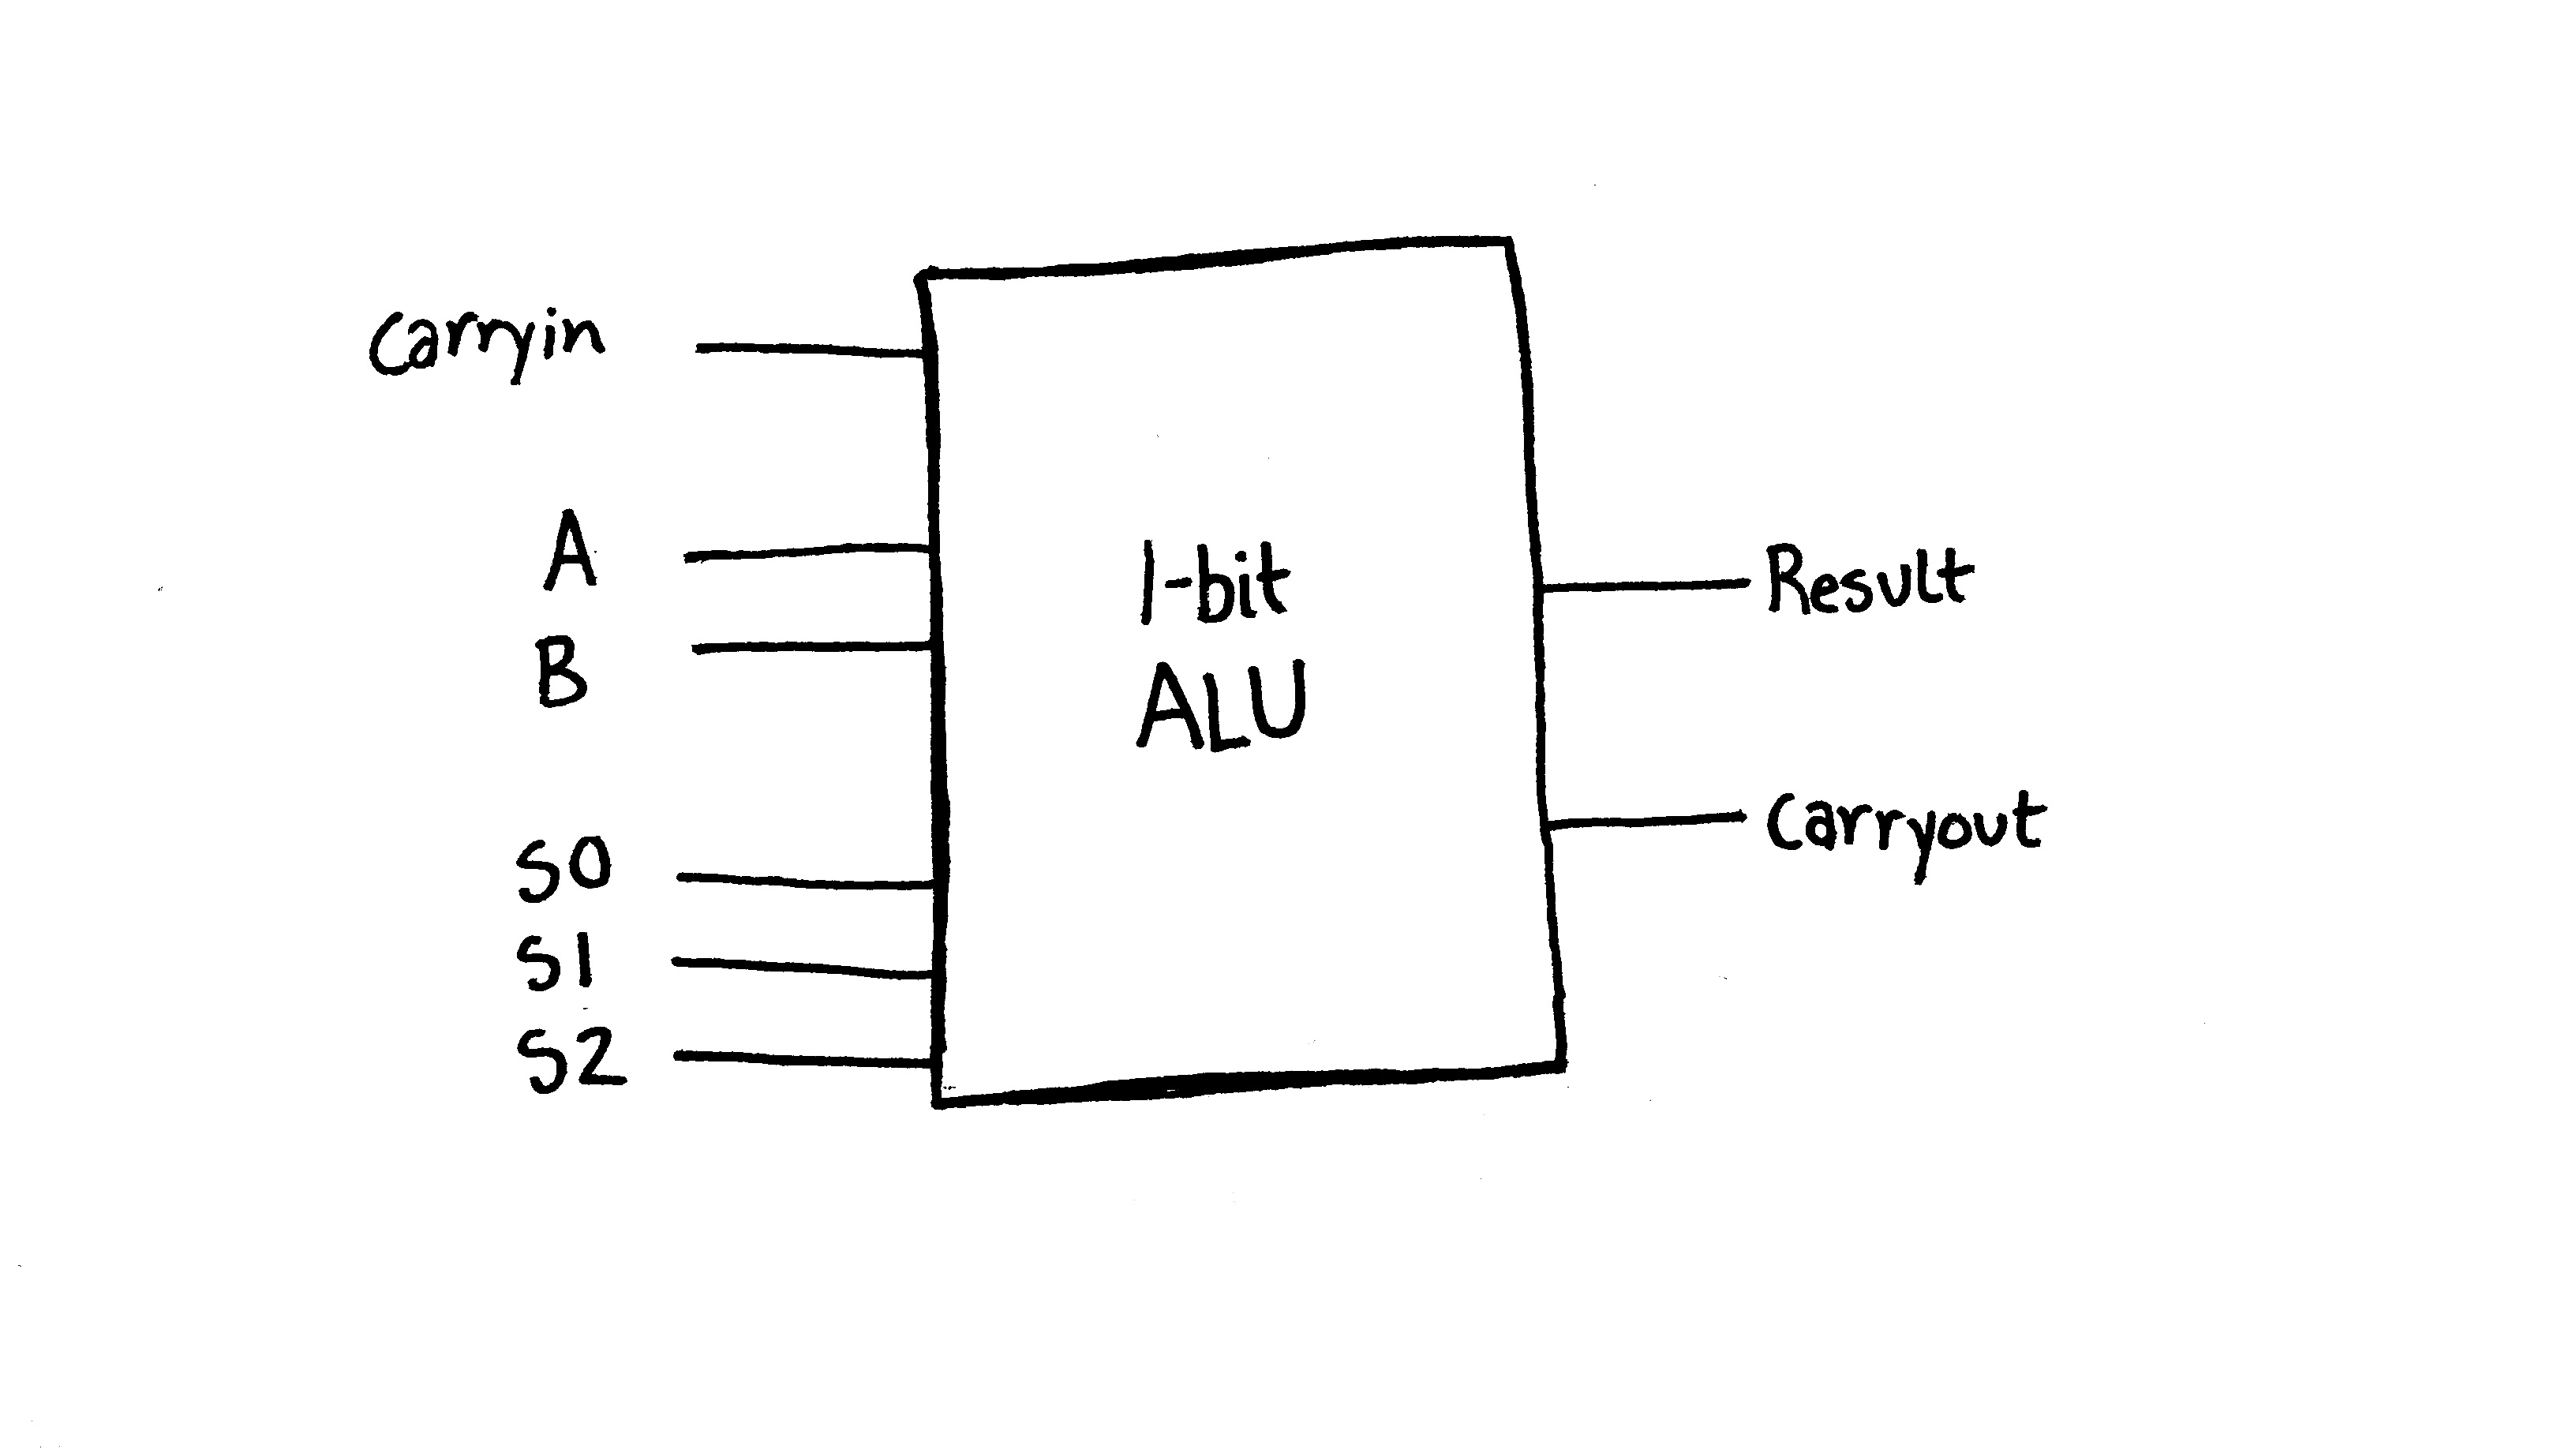 Carryin
A
B
S0
S1
S2
1-bit
ALU
Result
Carryout